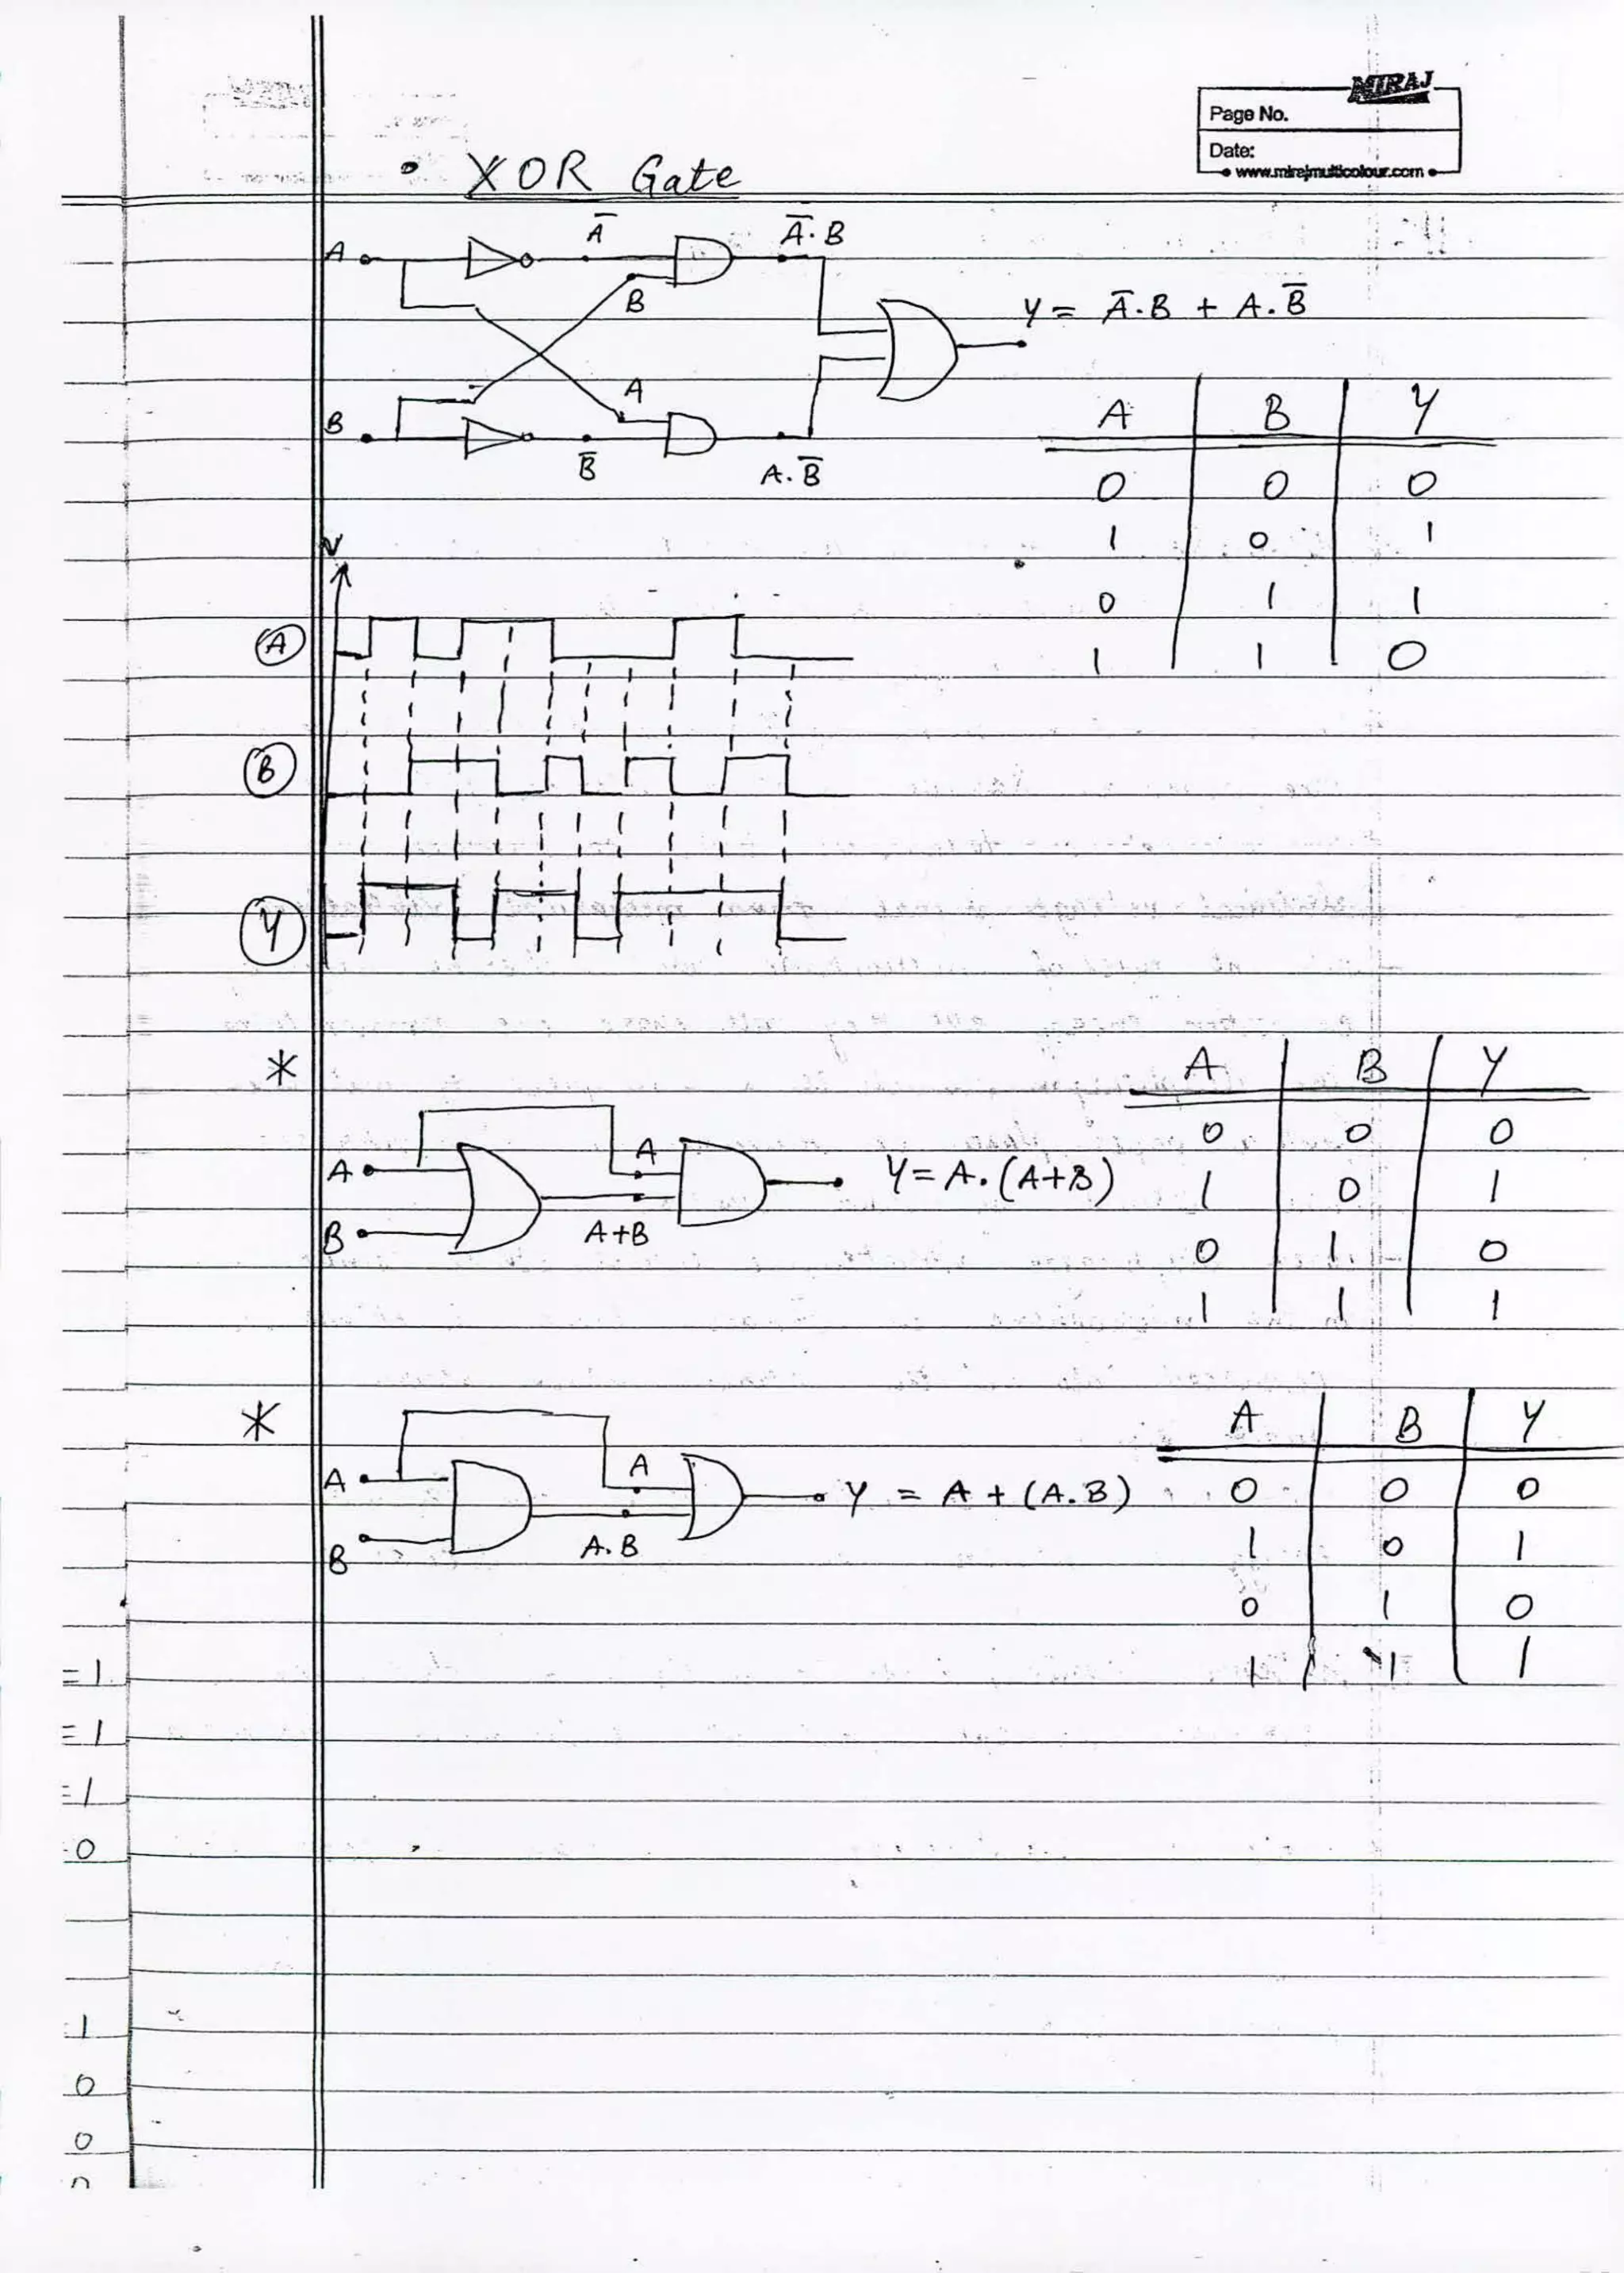 MIRAJ
Page No.
Date:
www.mirajmulticolour.com
• XOR Gate
A
Ā
Ā.B
B
Y = Ā.B + A.B̄
A
B
B̄
A.B̄
A B Y
0 0 0
1 0 1
0 1 1
1 1 0
V
A
B
Y
*
A
A
Y = A.(A+B)
B
A+B
A B Y
0 0 0
1 0 1
0 1 0
1 1 1
*
A
A
Y = A + (A.B)
B
A.B
A B Y
0 0 0
1 0 1
0 1 0
1 1 1
=1
=1
=1
0
1
0
0